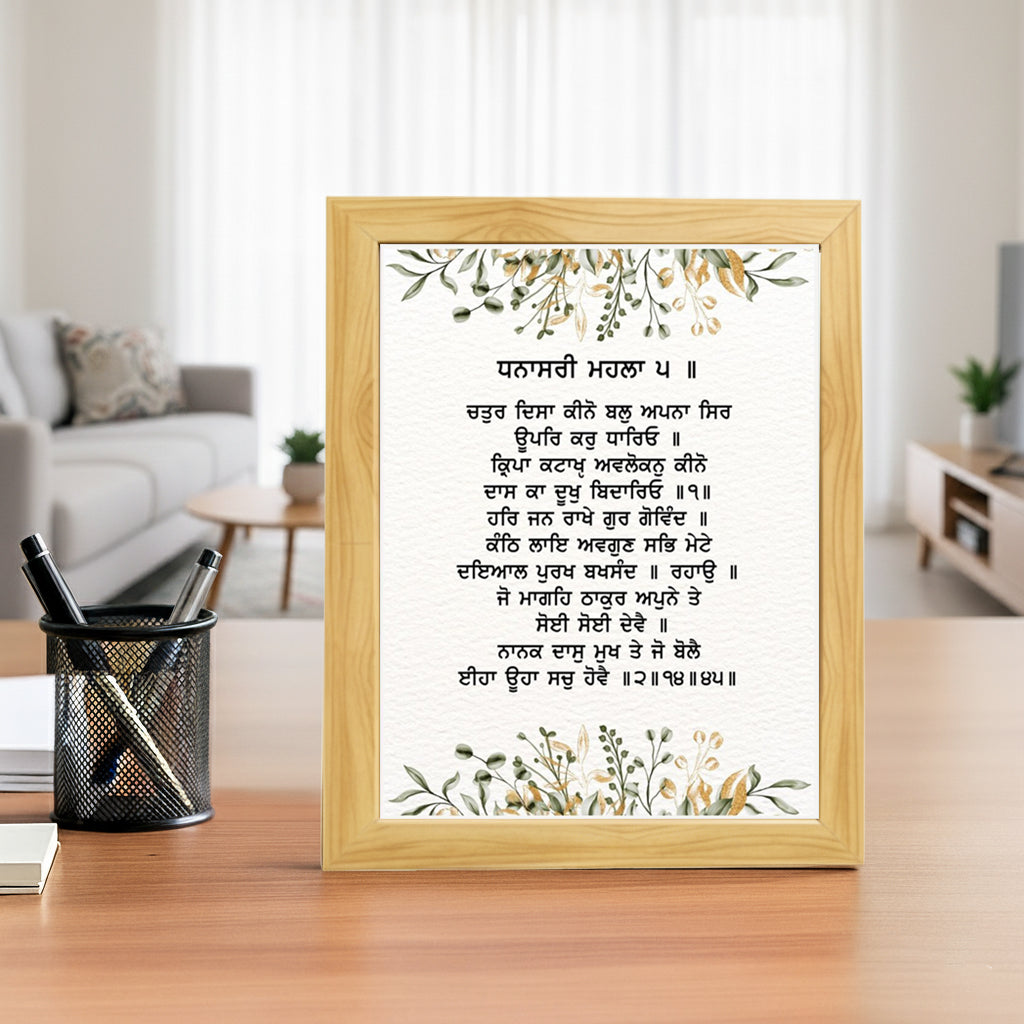 ਧਨਾਸਰੀ ਮਹਲਾ ੫ ॥
ਚਤੁਰ ਦਿਸਾ ਕੀਨੋ ਬਲੁ ਅਪਨਾ ਸਿਰ
ਊਪਰਿ ਕਰੁ ਧਾਰਿਓ ॥
ਕ੍ਰਿਪਾ ਕਟਾਖ੍ਯ੍ਯ ਅਵਲੋਕਨੁ ਕੀਨੋ
ਦਾਸ ਕਾ ਦੂਖੁ ਬਿਦਾਰਿਓ ॥੧॥
ਹਰਿ ਜਨ ਰਾਖੇ ਗੁਰ ਗੋਵਿੰਦ ॥
ਕੰਠਿ ਲਾਇ ਅਵਗੁਣ ਸਭਿ ਮੇਟੇ
ਦਇਆਲ ਪੁਰਖ ਬਖਸੰਦ ॥ ਰਹਾਉ ॥
ਜੋ ਮਾਗਹਿ ਠਾਕੁਰ ਅਪੁਨੇ ਤੇ
ਸੋਈ ਸੋਈ ਦੇਵੈ ॥
ਨਾਨਕ ਦਾਸੁ ਮੁਖ ਤੇ ਜੋ ਬੋਲੈ
ਈਹਾ ਊਹਾ ਸਚੁ ਹੋਵੈ ॥੨॥੧੪॥੪੫॥